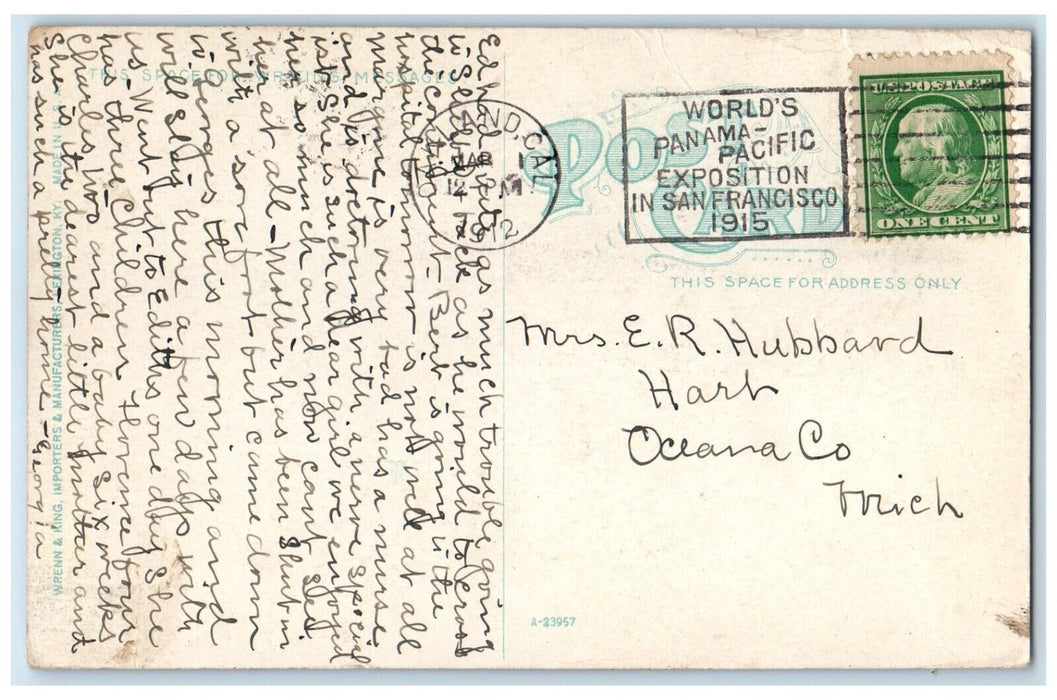 THIS SPACE FOR WRITING MESSAGES
Ed had quite as much trouble going
to as he would to cross
the continent - Bert is going to the
hospital tomorrow is not well at all
Margine is very bad has a nurse
and is doctoring with a nerve special
ist She is such a dear girl we enjoyed
her so much and now cant see
her at all - Mother has been shut in
with a sore foot but came down
to Georges this morning and
will stay here a few days with
us - Went out to Ediths one day She
has three children Florence four
Charles two and a baby six weeks
She is the dearest little mother and
has such a pretty home - Georgia
WRENN & KING, IMPORTERS & MANUFACTURERS, LEXINGTON, KY. MADE IN U.S.A.
LAND, CAL
MAR
12 - M
1912
POST CARD
WORLD'S
PANAMA-
PACIFIC
EXPOSITION
IN SAN FRANCISCO
1915
U.S. POSTAGE
ONE CENT
THIS SPACE FOR ADDRESS ONLY
Mrs. E. R. Hubbard
Hart
Oceana Co
Mich
A-23957